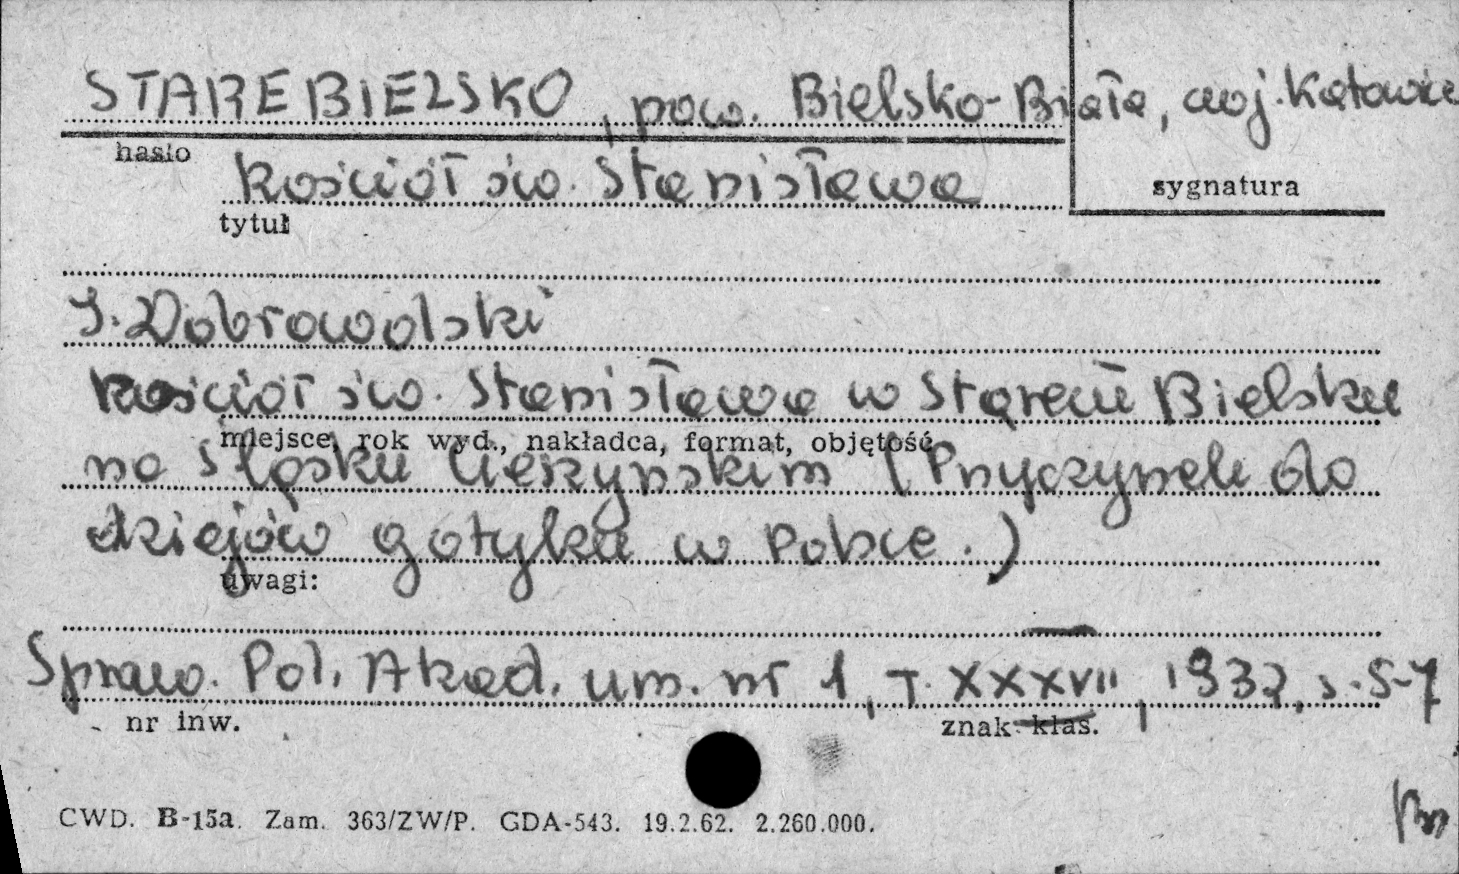 STARE BIELSKO, pow. Bielsko-Biała, woj. Katowice
hasło
Kościół św. Stanisława
sygnatura
tytuł
T. Dobrowolski
Kościół św. Stanisława w Starem Bielsku
miejsce, rok wyd., nakładca, format, objętość
na Śląsku Cieszyńskim (Przyczynek do
dziejów gotyku w Polsce.)
uwagi:
Spraw. Pol. Akad. um. nr 1, T. XXXVII, 1932, s. 5-7
nr inw.
znak klas.
CWD. B-15a. Zam. 363/ZW/P. GDA-543. 19.2.62. 2.260.000.